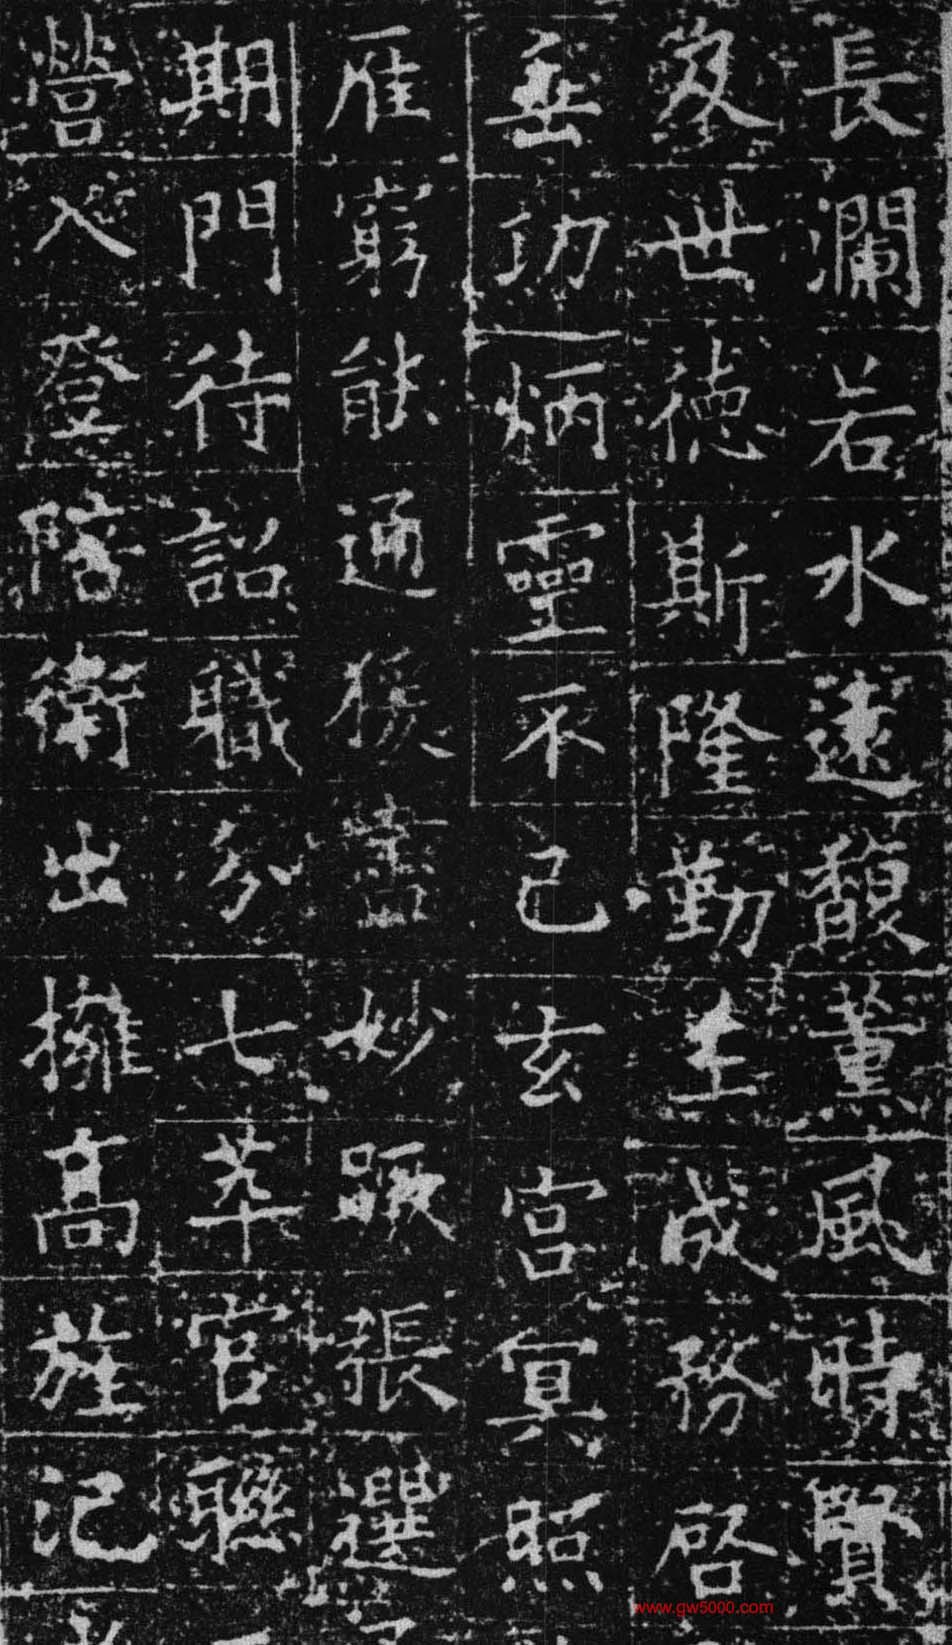 長瀾若水遠馥薰風時賢
爰世德斯隆勤生成務啓
垂功炳靈不已玄宮冥照
雁窮能通猨書妙蹶張選
期門待詔職分七萃官聯
營入登陪衛出擁高旌氾
www.gw5000.com